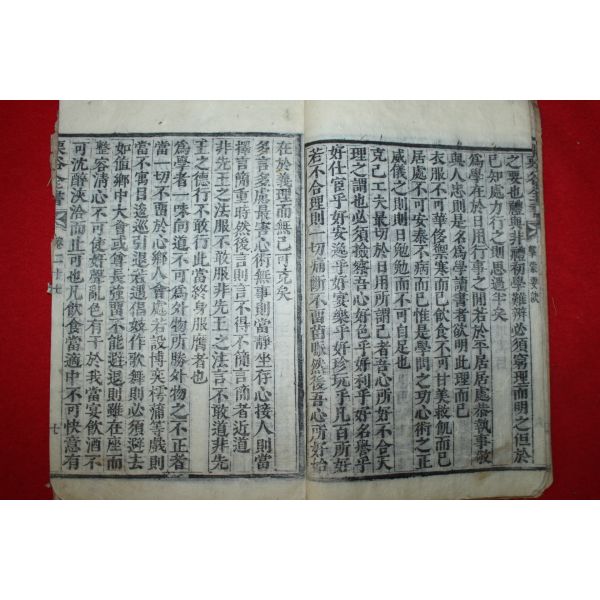 栗谷全書 擊蒙要訣
之要也禮與非禮初學難辨必須窮理而明之但於
已知處力行之則思過半矣
爲學在於日用行事之閒若於平居居處恭執事敬
與人忠則是名爲學讀書者欲明此理而已
衣服不可華侈禦寒而已飮食不可甘美救飢而已
居處不可安泰不病而已惟是學問之功心術之正
威儀之則則日勉勉而不可自足也
克己工夫最切於日用所謂己者吾心所好不合天
理之謂也必須撿察吾心好色乎好利乎好名譽乎
好仕宦乎好安逸乎好宴樂乎好珍玩乎凡百所好
若不合理則一切痛斷不留苗脈然後吾心所好始
在於義理而無己可克矣
多言多慮最害心術無事則當靜坐存心接人則當
擇言簡重時然後言則言不得不簡言簡者近道
非先王之法服不敢服非先王之法言不敢道非先
王之德行不敢行此當終身服膺者也
爲學者一味向道不可爲外物所勝外物之不正者
當一切不留於心鄕人會處若設博奕樗蒲等戲則
當不寓目逡巡引退若遇倡妓作歌舞則必須避去
如値鄕中大會或尊長強留不能避退則雖在座而
整容淸心不可使奸聲亂色有干於我當宴飮酒不
可沈醉浹洽而止可也凡飮食當適中不可快意有
栗谷全書 卷二十七 七